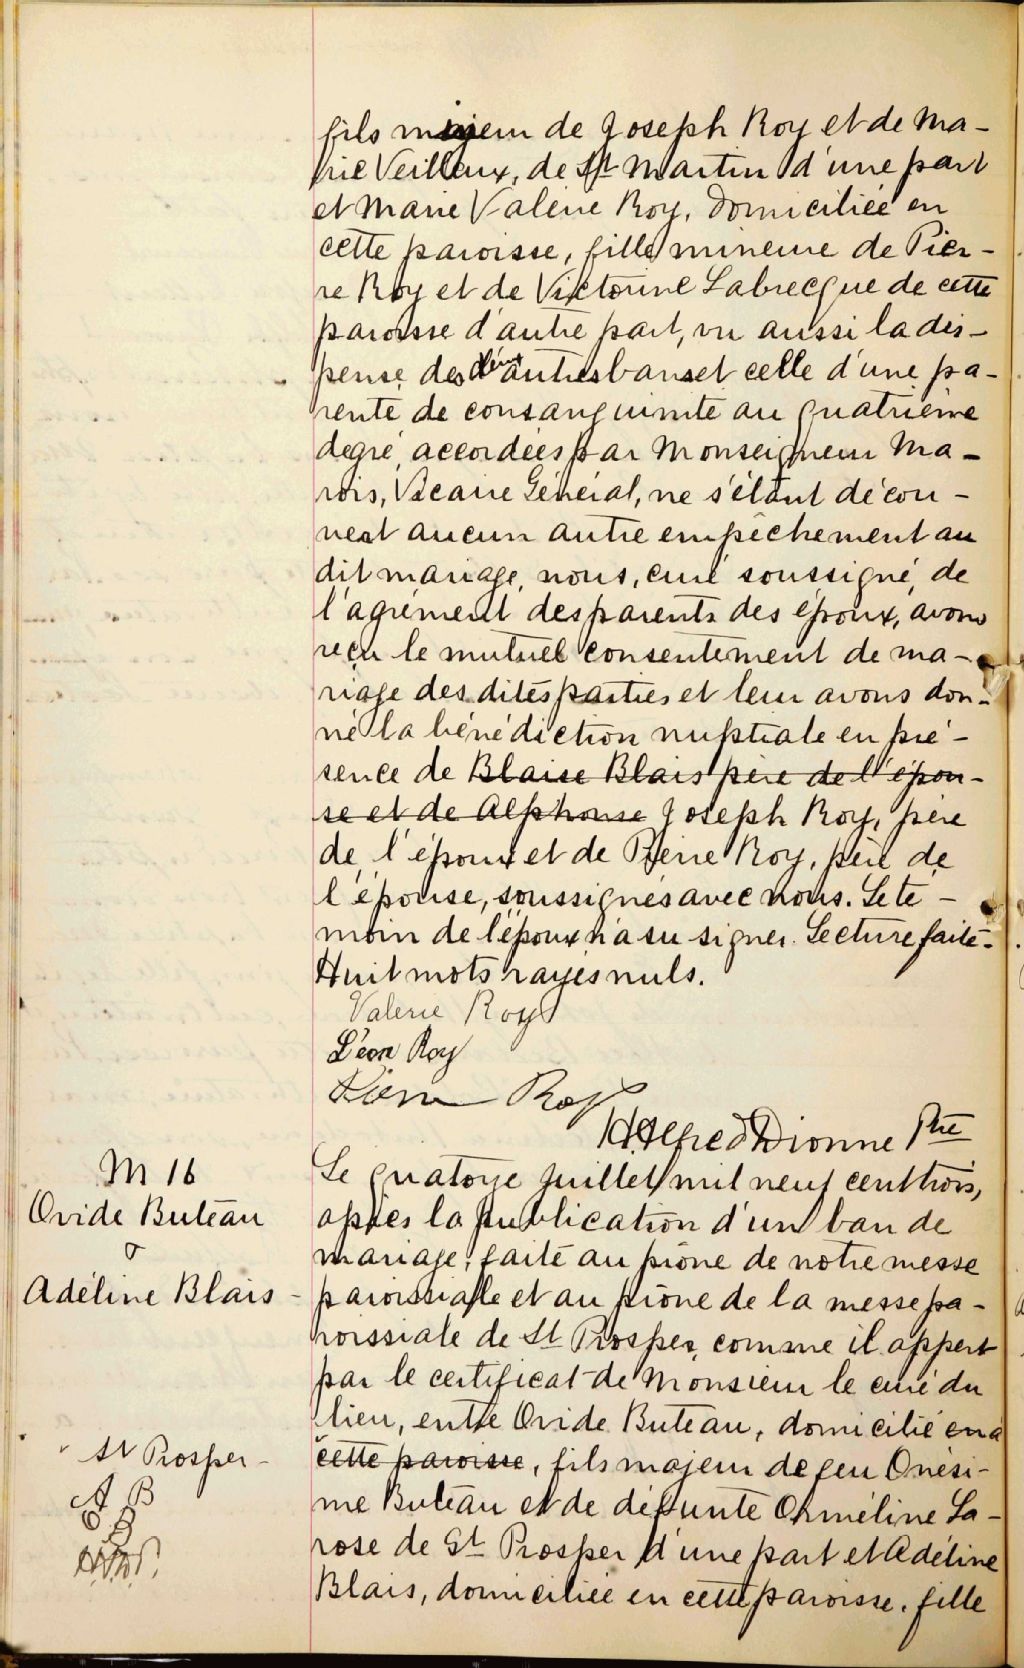 fils mineur de Joseph Roy et de Ma-
rie Veilleux, de St Martin d'une part
et Marie Valérie Roy, domiciliée en
cette paroisse, fille mineure de Pier-
re Roy et de Victorine Labrecque de cette
paroisse d'autre part, vu aussi la dis-
pense des deux autres bans et celle d'une pa-
renté de consanguinité au quatrième
degré, accordées par Monseigneur Ma-
rois, Vicaire Général, ne s'étant décou-
vert aucun autre empêchement au
dit mariage, nous, curé soussigné, de
l'agrément des parents des époux, avons
reçu le mutuel consentement de ma-
riage des dites parties et leur avons don-
né la bénédiction nuptiale en pré-
sence de Blaise Blais père de l'épou-
se et de Alphonse Joseph Roy, père
de l'époux et de Pierre Roy, père de
l'épouse, soussignés avec nous. Le té-
moin de l'époux n'a su signer. Lecture faite.
Huit mots rayés nuls.
Valerie Roy
Léon Roy
Pierre Roy
H. Alfred Dionne Ptre
M 16
Ovide Buteau
&
Adéline Blais
Le quatorze Juillet, mil neuf cent trois,
après la publication d'un ban de
mariage, faite au prône de notre messe
paroissiale et au prône de la messe pa-
roissiale de St Prosper, comme il appert
par le certificat de Monsieur le curé du
lieu, entre Ovide Buteau, domicilié en à
cette paroisse, fils majeur de feu Onési-
me Buteau et de défunte Orméline La-
rose de St Prosper d'une part et Adéline
Blais, domiciliée en cette paroisse, fille
St Prosper
A B